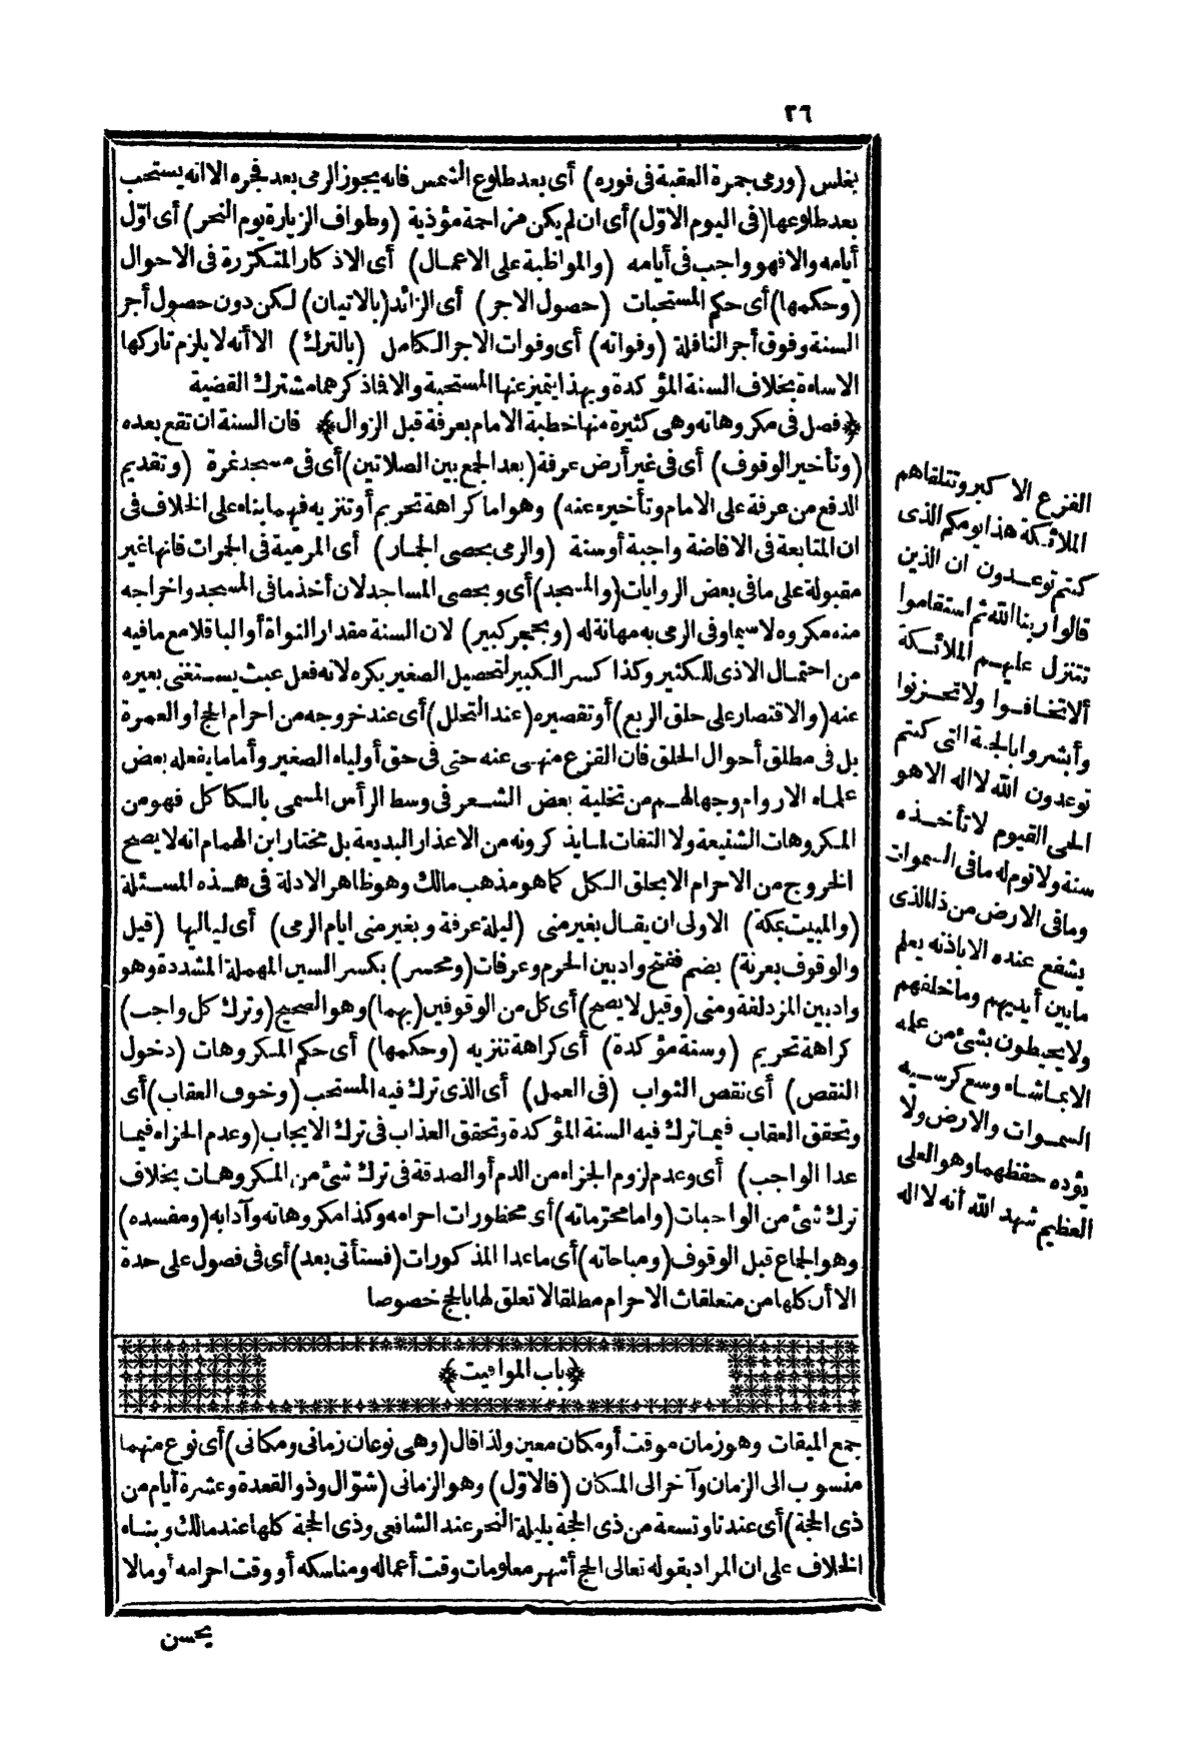 ٢٦
بغلس (ورمى جمرة العقبة فى فوره) أى بعد طلوع الشمس فانه يجوز الرمى بعد فجره الا انه يستحب
بعد طلوعها (فى اليوم الاوّل) أى ان لم يكن مزاحمة مؤذية (وطواف الزيارة يوم النحر) أى اوّل
أيامه والا فهو واجب فى أيامه (والمواظبة على الاعمال) أى الاذكار المتكرّرة فى الاحوال
(وحكمها) أى حكم المستحبات (حصول الاجر) أى الزائد (بالاتيان) لكن دون حصول أجر
السنة وفوق أجر النافلة (وفواته) أى وفوات الاجر الكامل (بالترك) الا أنه لا يلزم تاركها
الاساءة بخلاف السنة المؤكدة وبهذا يتميز عنها المستحبة والا فاذكرهما مشترك القضية
﴿فصل فى مكروهاته وهى كثيرة منها خطبة الامام بعرفة قبل الزوال﴾ فان السنة ان تقع بعده
(وتأخير الوقوف) أى فى غير أرض عرفة (بعد الجمع بين الصلاتين) أى فى مسجد نمرة (وتقديم
الدفع من عرفة على الامام وتأخيره عنه) وهو اما كراهة تحريم أو تنزيه فيهما بناء على الخلاف فى
ان المتابعة فى الافاضة واجبة أو سنة (والرمى بحصى الجمار) أى المرمية فى الجمرات فانها غير
مقبولة على ما فى بعض الروايات (والمسجد) أى وبحصى المساجد لان أخذ ما فى المسجد واخراجه
منه مكروه لاسيما وفى الرمى به مهانة له (وبحجر كبير) لان السنة مقدار النواة أو الباقلا مع ما فيه
من احتمال الاذى للكثير وكذا كسر الكبير لتحصيل الصغير يكره لانه فعل عبث يستغنى بغيره
عنه (والاقتصار على حلق الربع) أو تقصيره (عند التحلل) أى عند خروجه من احرام الحج أو العمرة
بل فى مطلق أحوال الحلق فان القزع منهى عنه حتى فى حق أولياء الصغير وأما ما يفعله بعض
علماء الاروام وجهالهم من تخلية بعض الشعر فى وسط الرأس المسمى بالكاكل فهو من
المكروهات الشنيعة ولا التفات لما يذكرونه من الاعذار البديعة بل مختار ابن الهمام انه لا يصح
الخروج من الاحرام الا بحلق الكل كما هو مذهب مالك وهو ظاهر الادلة فى هذه المسئلة
(والمبيت بمكة) الاولى ان يقال بغير منى (ليلة عرفة وبغير منى ايام الرمى) أى لياليها (قيل
والوقوف بعرنة) بضم ففتح واد بين الحرم وعرفات (ومحسر) بكسر السين المهملة المشددة وهو
واد بين المزدلفة ومنى (وقيل لا يصح) أى كل من الوقوفين (بهما) وهو الصحيح (وترك كل واجب)
كراهة تحريم (وسنة مؤكدة) أى كراهة تنزيه (وحكمها) أى حكم المكروهات (دخول
النقص) أى نقص الثواب (فى العمل) أى الذى ترك فيه المستحب (وخوف العقاب) أى
وتحقق العقاب فيما ترك فيه السنة المؤكدة وتحقق العذاب فى ترك الايجاب (وعدم الجزاء فيما
عدا الواجب) أى وعدم لزوم الجزاء من الدم أو الصدقة فى ترك شئ من المكروهات بخلاف
ترك شئ من الواجبات (واما محرّماته) أى محظورات احرامه وكذا مكروهاته وآدابه (ومفسده)
وهو الجماع قبل الوقوف (ومباحاته) أى ما عدا المذكورات (فستأتى بعد) أى فى فصول على حدة
الا أن كلها من متعلقات الاحرام مطلقا لا تعلق لها بالحج خصوصا
﴿باب المواقيت﴾
جمع الميقات وهو زمان موقت أو مكان معين ولذا قال (وهى نوعان زمانى ومكانى) أى نوع منهما
منسوب الى الزمان وآخر الى المكان (فالاوّل) وهو الزمانى (شوّال وذو القعدة وعشرة أيام من
ذى الحجة) أى عندنا وتسعة من ذى الحجة بليلة النحر عند الشافعى وذى الحجة كلها عند مالك وبناء
الخلاف على ان المراد بقوله تعالى الحج أشهر معلومات وقت أعماله ومناسكه أو وقت احرامه أو مالا
يحسن
الفزع الاكبر وتتلقاهم
الملائكة هذا يومكم الذى
كنتم توعدون ان الذين
قالوا ربنا الله ثم استقاموا
تتنزل عليهم الملائكة
ألا تخافوا ولا تحزنوا
وأبشروا بالجنة التى كنتم
توعدون الله لا اله الا هو
الحى القيوم لا تأخذه
سنة ولا نوم له ما فى السموات
وما فى الارض من ذا الذى
يشفع عنده الا باذنه يعلم
ما بين أيديهم وما خلفهم
ولا يحيطون بشئ من علمه
الا بما شاء وسع كرسيه
السموات والارض ولا
يؤده حفظهما وهو العلى
العظيم شهد الله أنه لا اله